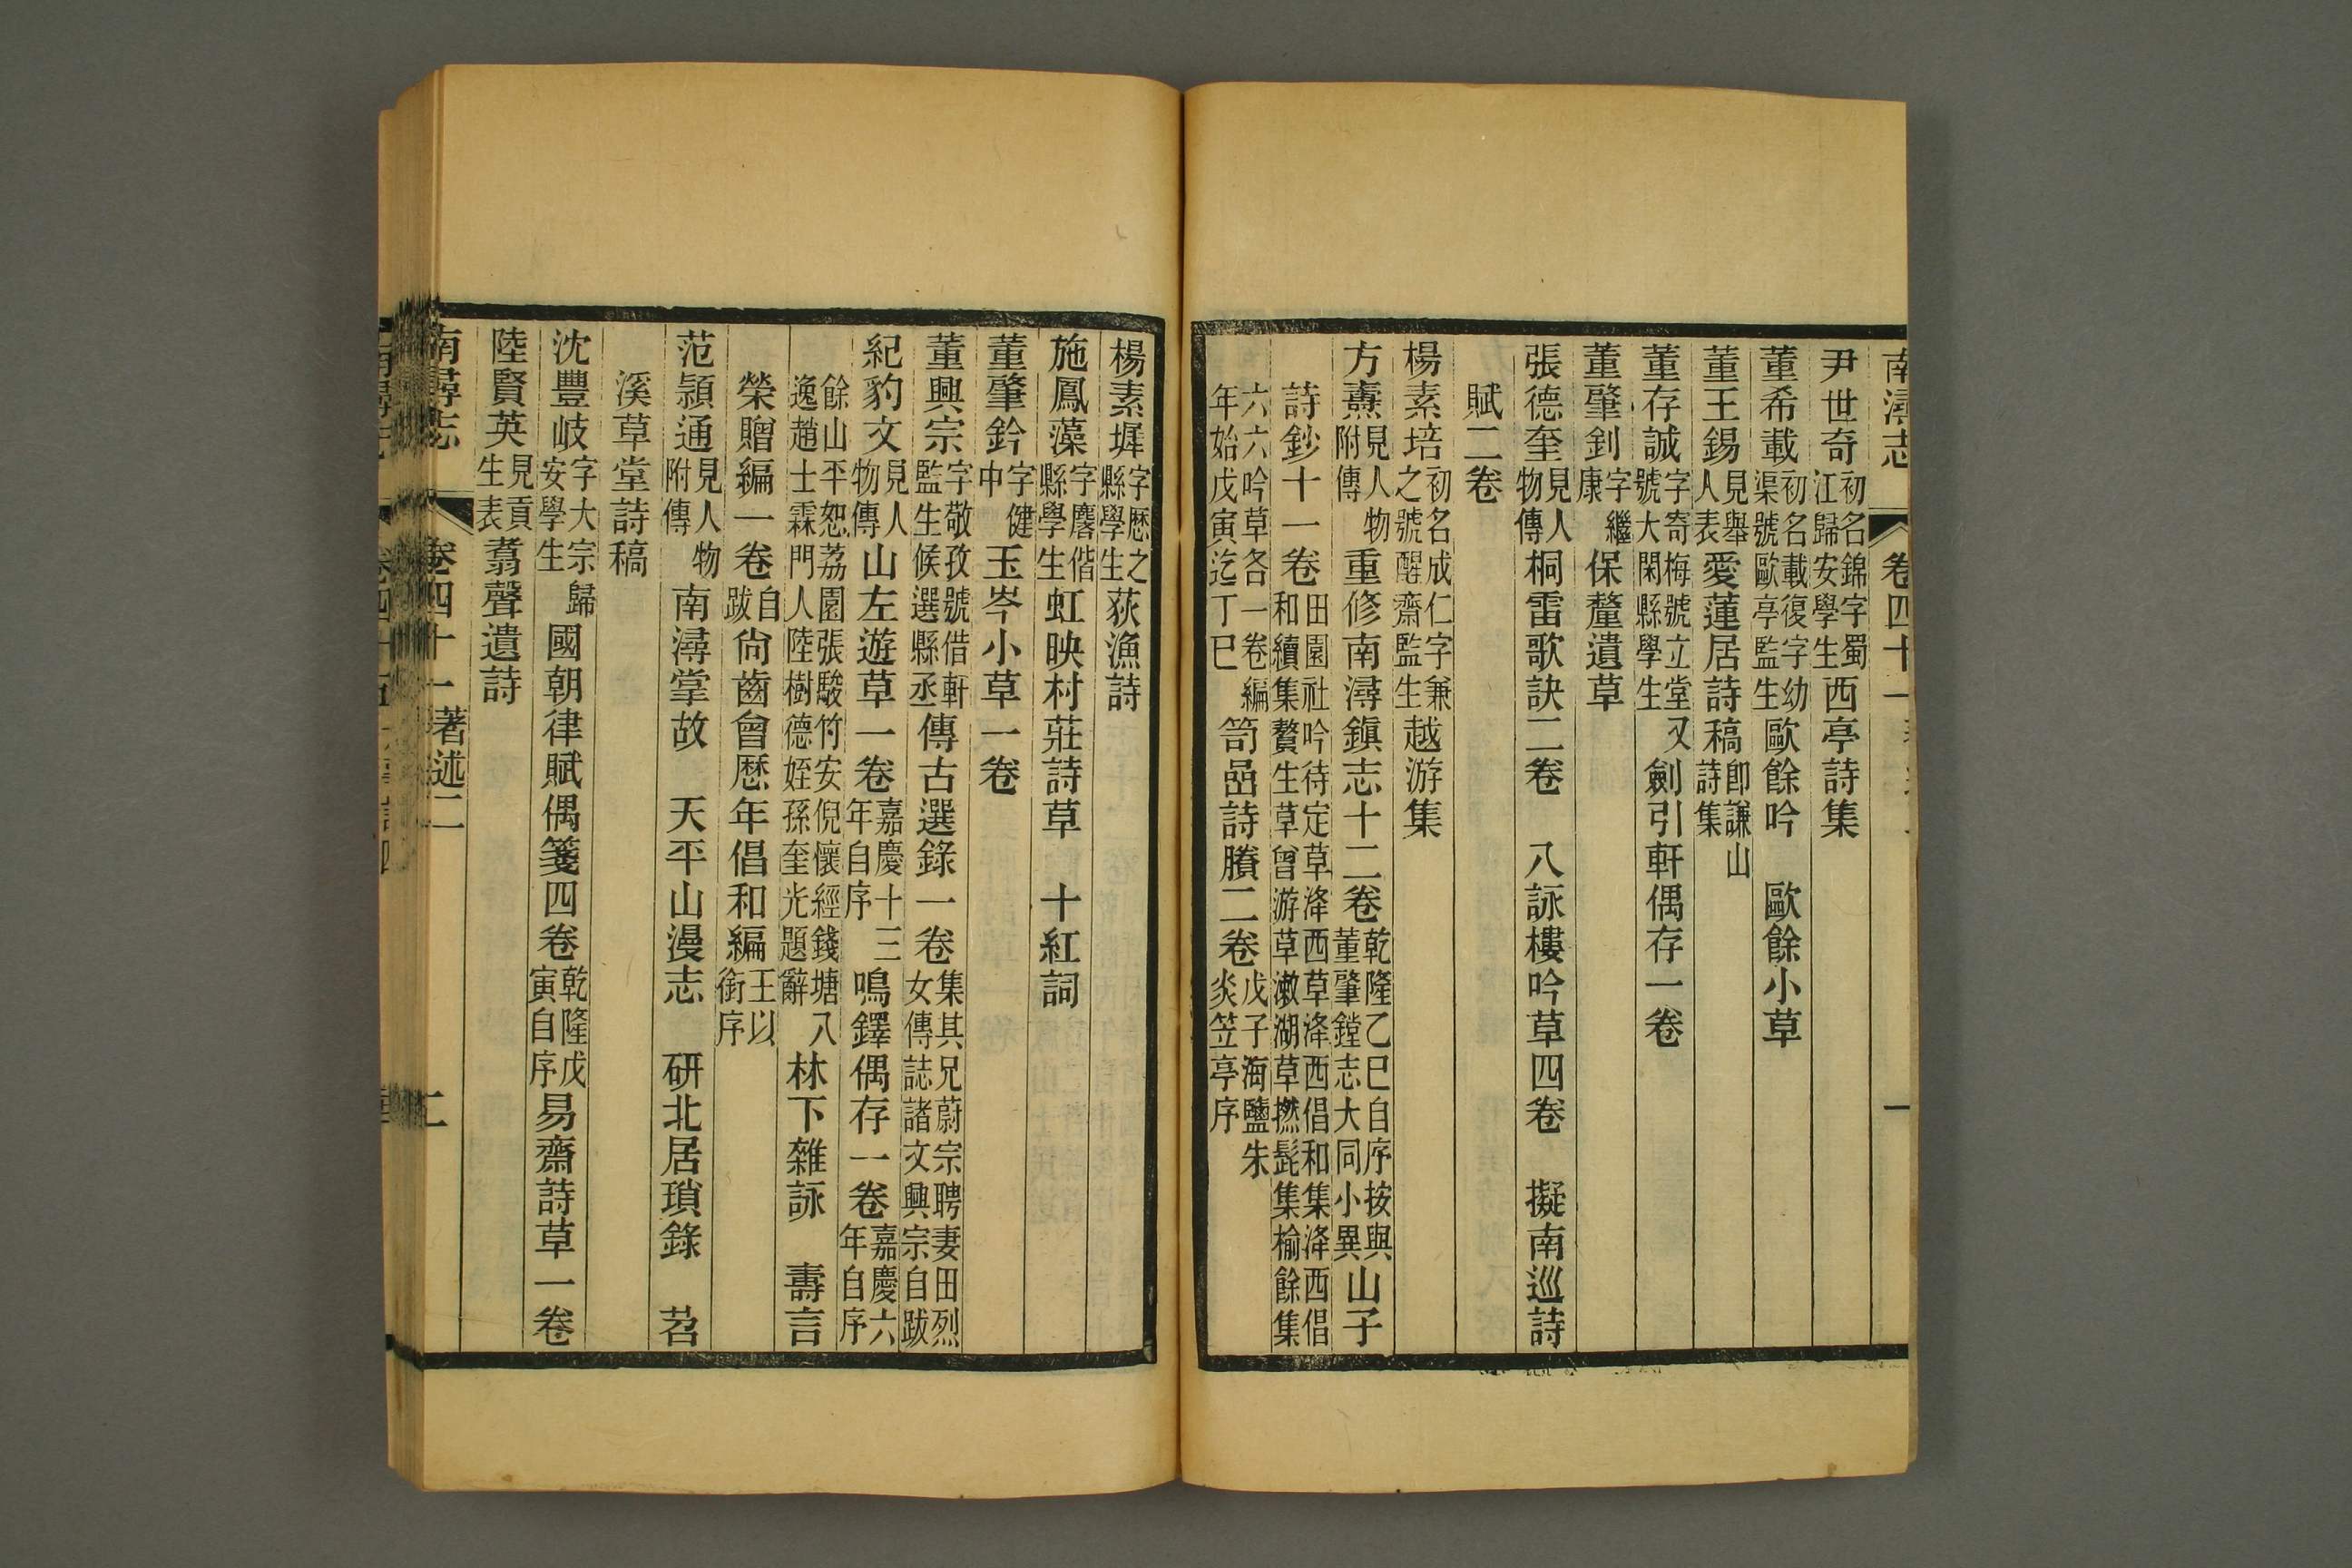 南潯志 卷四十一 一
尹世奇初名錦字蜀江歸安學生西亭詩集
董希載初名載復字幼渠號歐亭監生歐餘吟 歐餘小草
董王錫見舉人表愛蓮居詩稿卽謙山詩集
董存誠字奇梅號立堂又號大閑縣學生劍引軒偶存一卷
董肇釗字繼康保釐遺草
張德奎見人物傳桐雷歌訣二卷 八詠樓吟草四卷 擬南巡詩
賦二卷
楊素培初名成仁字兼之號醒齋監生越游集
方熹見人物附傳重修南潯鎮志十二卷乾隆乙巳自序按與董肇鏜志大同小異山子
詩鈔十一卷田園社吟待定草洚西草洚西倡和集洚西倡和續集贅生草曾游草漱湖草撚髭集榆餘集
六六吟草各一卷編年始戊寅迄丁巳笥嵒詩賸二卷戊子海鹽朱炎笠亭序
楊素墀字歷之縣學生荻漁詩
施鳳藻字麐偕縣學生虹映村莊詩草 十紅詞
董肇鈐字健中玉岑小草一卷
董興宗字敬孜號借軒監生候選縣丞傳古選錄一卷集其兄蔚宗聘妻田烈女傳誌諸文興宗自跋
紀豹文見人物傳山左遊草一卷嘉慶十三年自序鳴鐸偶存一卷嘉慶六年自序
餘山平恕荔園張駿竹安倪懷經錢塘八逸趙士霖門人陸樹德姪孫奎光題辭林下雜詠 壽言
榮贈編一卷自跋尙齒會歷年倡和編王以銜序
范潁通見人物附傳南潯掌故 天平山漫志 研北居瑣錄 苕
溪草堂詩稿
沈豐岐字大宗歸安學生國朝律賦偶箋四卷乾隆戊寅自序易齋詩草一卷
陸賢英見貢生表翥聲遺詩
南潯志 卷四十一 著述二 二